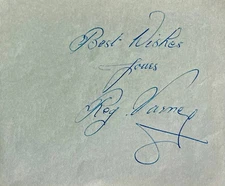 Best Wishes
Yours
Roy Varney